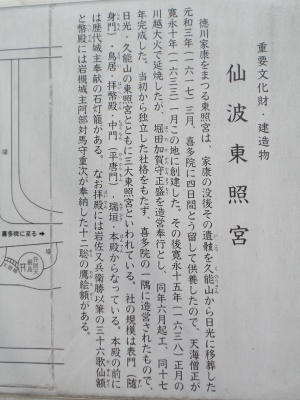 重要文化財・建造物
仙波東照宮
徳川家康をまつる東照宮は、家康の没後その遺骸を久能山から日光に移葬した
元和三年（一六一七）三月、喜多院に四日間とう留して供養したので、天海僧正が
寛永十年（一六三三）一月この地に創建した。その後寛永十五年（一六三八）正月の
川越大火で延焼したが、堀田加賀守正盛を造営奉行とし、同年六月起工、同十七
年完成した。当初から独立した社格をもたず、喜多院の一隅に造営されたもので、
日光・久能山の東照宮とともに三大東照宮といわれている。社の規模は表門（随
身門）・鳥居・拝幣殿・中門（平唐門）・瑞垣・本殿からなっている。本殿の前に
は歴代城主奉献の石灯籠がある。なお拝殿には岩佐又兵衛勝以筆の三十六歌仙額
と幣殿には岩槻城主阿部対馬守重次が奉納した十二聡の鷹絵額がある。
喜多院に至る